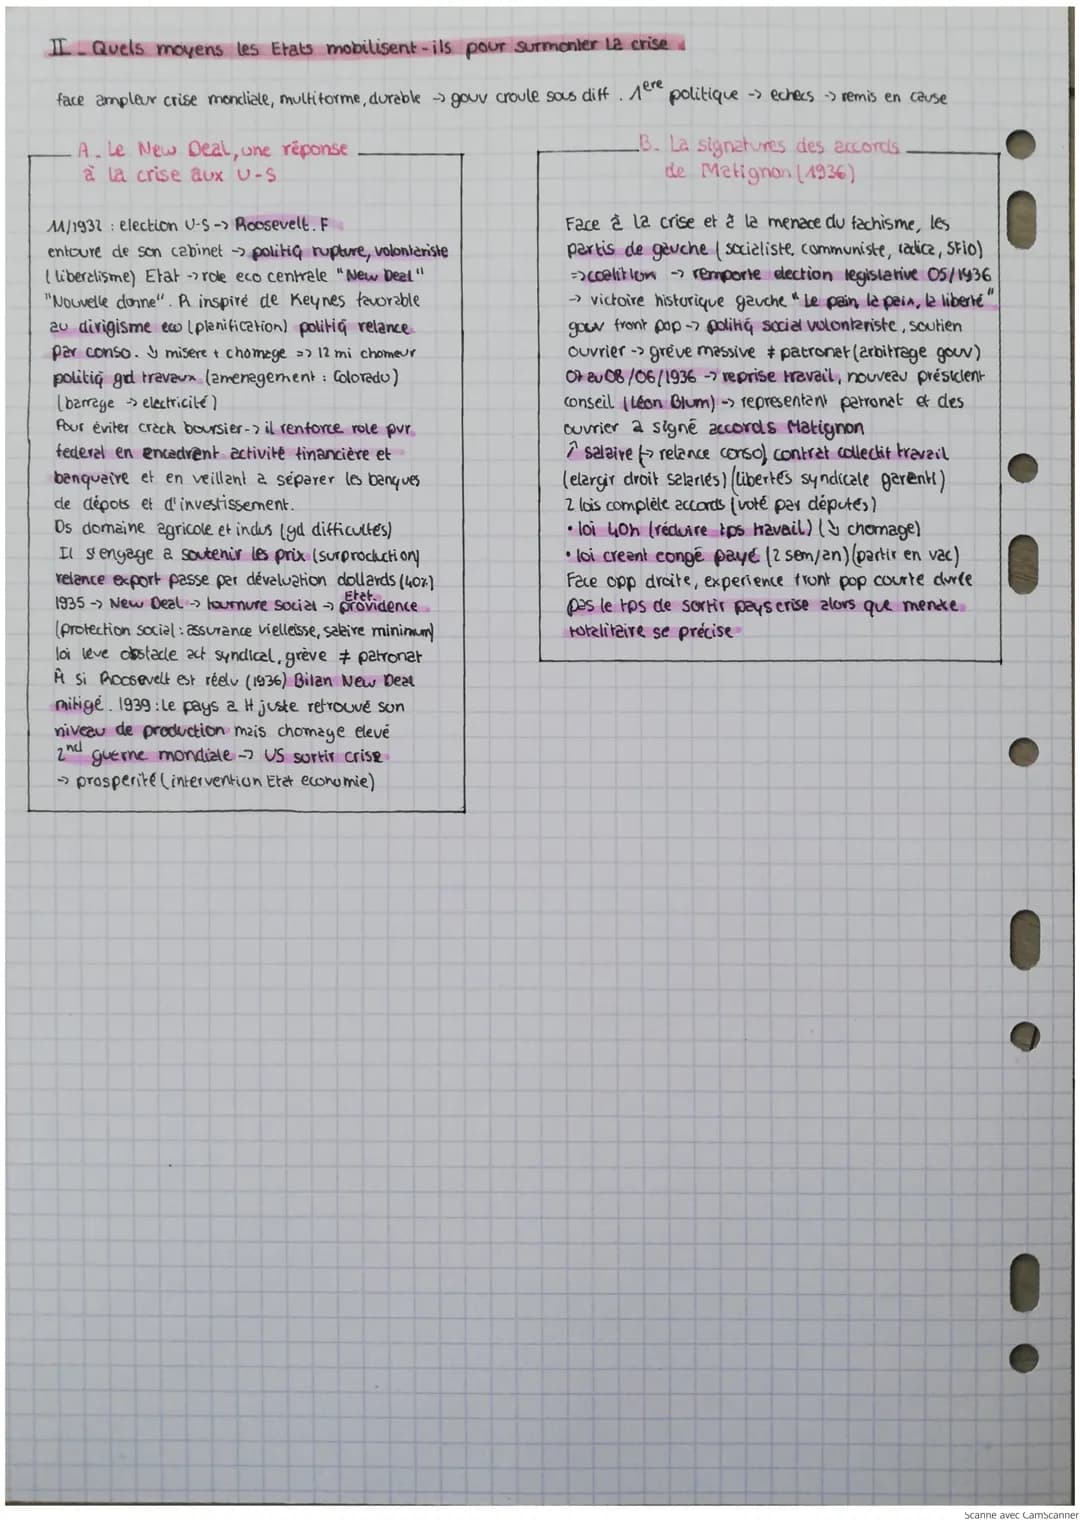 II - Quels moyens les Etats mobilisent-ils pour surmonter la crise
face ampleur crise mondiale, multiforme, durable -> gouv croule sous diff. 1ere politique -> echecs -> remis en cause
A. Le New Deal, une réponse
à la crise aux U-S
11/1932 : election U-S -> Roosevelt. F
entoure de son cabinet -> politiq rupture, volontariste
(liberalisme) Etat -> role eco centrale "New Deal"
"Nouvelle donne". R inspiré de Keynes favorable
au dirigisme eco (planification) politiq relance
par conso. ↘ misere + chomege => 12 mi chomeur
politiq grd travaux (amenagement : Colorado)
(barrage -> electricité)
Pour éviter crack boursier -> il renforce role pvr
federal en encadrent activité financière et
banquaire et en veillant a séparer les banques
de dépots et d'investissement.
Ds domaine agricole et indus (gd difficultés)
Il s'engage a soutenir les prix (surproduction)
relance export passe par dévaluation dollards (40%)
1935 -> New Deal -> tournure social -> Etat. providence
(protection social : assurance vielleisse, salaire minimum)
loi leve obstacle act syndical, grève ≠ patronat
À si Roosevelt est réelu (1936) Bilan New Deal
mitigé. 1939 : Le pays a H juste retrouvé son
niveau de production mais chomage elevé
2nd guerre mondiale -> US sortir crise
-> prosperité (intervention Etat economie)
B. La signatures des accords
de Matignon (1936)
Face à la crise et à la menace du fachisme, les
partis de gauche (socialiste, communiste, radica, SFIO)
=> coalition -> remporte election legislative 05/1936
-> victoire historique gauche "Le pain, la paix, la liberté"
gouv front pop -> politiq social volontariste, soutien
ouvrier -> grève massive ≠ patronat (arbitrage gouv)
07 au 08/06/1936 -> reprise travail, nouveau président
conseil (Léon Blum) -> representant patronat et des
ouvrier a signé accords Matignon
↗ salaire (-> relance conso) contrat collectif travail
(elargir droit salariés) (libertés syndicale garenti)
2 lois complète accords (voté par députés)
• loi 40h (réduire tps travail) (↘ chomage)
• loi creant congé payé (2 sem/an) (partir en vac)
Face opp droite, experience front pop courte durée
pas le tps de sortir pays crise alors que menace
totalitaire se précise
Scanné avec CamScanner